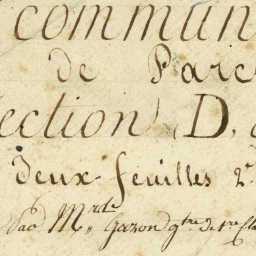 commun
de Parc
ection D,
deux feuilles 2
par Mr. Gazon g.tre de 1.re cla